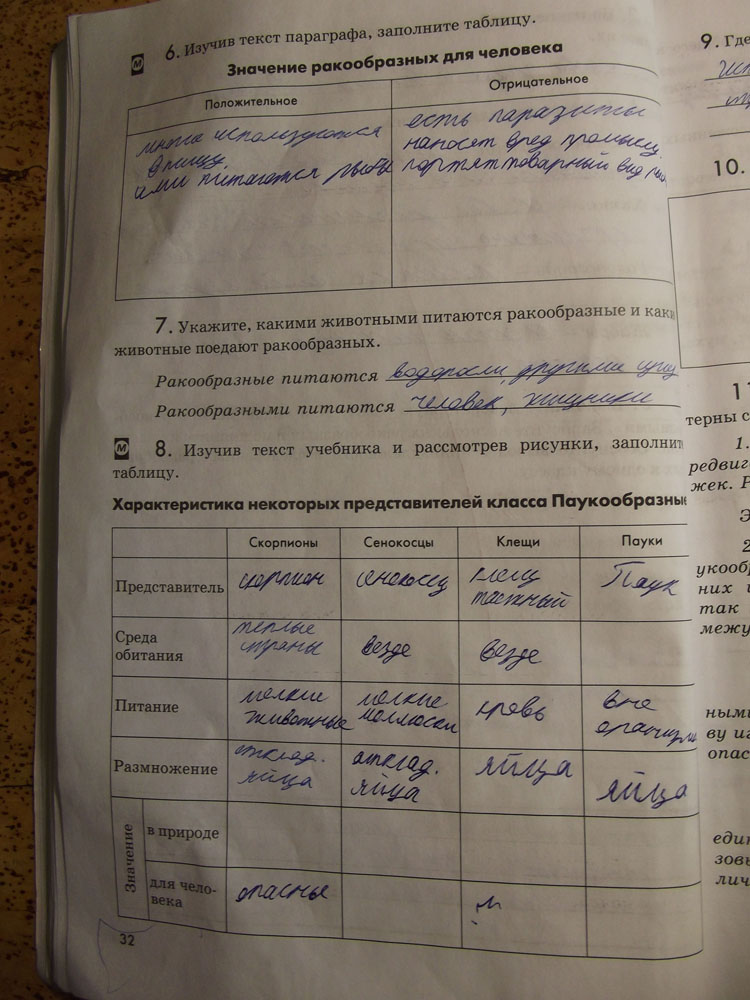 6. Изучив текст параграфа, заполните таблицу.
Значение ракообразных для человека
Положительное Отрицательное
многа используются
в пищу.
ими питаются рыбы
есть паразиты
наносят вред промысл.
портят товарный вид
7. Укажите, какими животными питаются ракообразные и каки
животные поедают ракообразных.
Ракообразные питаются водоросли, другими
Ракообразными питаются человек, хищники
8. Изучив текст учебника и рассмотрев рисунки, заполните
таблицу.
Характеристика некоторых представителей класса Паукообразные
Скорпионы Сенокосцы Клещи Пауки
Представитель скорпион сенокосец клещ таежный Паук
Среда обитания теплые страны везде везде
Питание мелкие животные мелкие моллюски кровь вне организма
Размножение отклад. яйца отклад. яйца яйца яйца
Значение
в природе
для чело-
века опасны
32
9. Где
10.
11
терны с
1.
редвиг
жек. Р
Э
2
укооб
них и
так
межу
ными
ву из
опас
един
зовы
лич